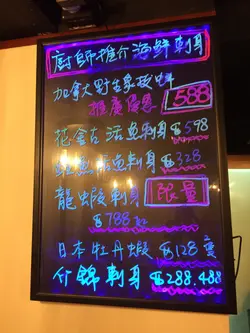 廚師推介海鮮刺身
加拿大野生象拔蚌
推廣優惠 $588
活魚刺身 $598
魚刺身 $328
龍蝦刺身 限量
$788
日本牡丹蝦 $128
什錦刺身 $288.488